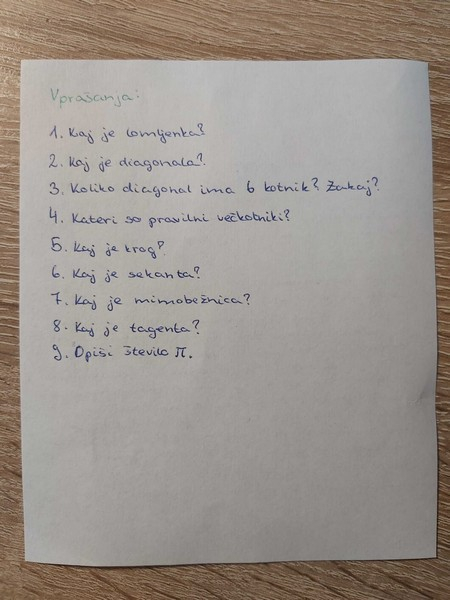 Vprašanja:
1. Kaj je lomljenka?
2. Kaj je diagonala?
3. Koliko diagonal ima 6 kotnik? Zakaj?
4. Kateri so pravilni večkotniki?
5. Kaj je krog?
6. Kaj je sekanta?
7. Kaj je mimobežnica?
8. Kaj je tagenta?
9. Opiši število π.